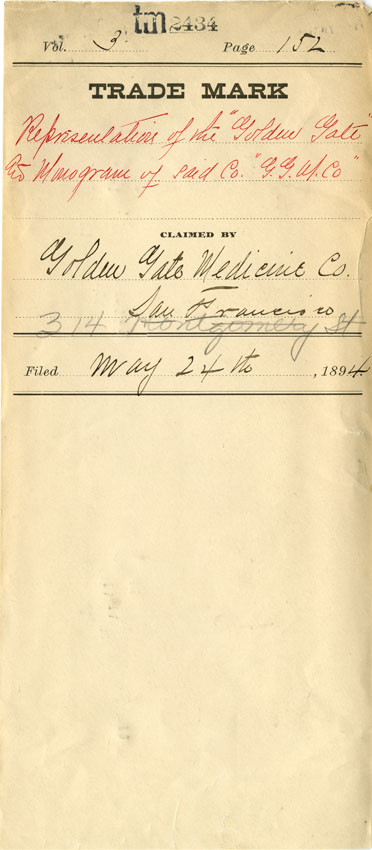 tm 2434
Vol. 3 Page 152
TRADE MARK
Representation of the "Golden Gate"
Monogram of said Co. "G.G.M.Co"
CLAIMED BY
Golden Gate Medicine Co.
San Francisco
314 Montgomery St
Filed May 24th, 1894.